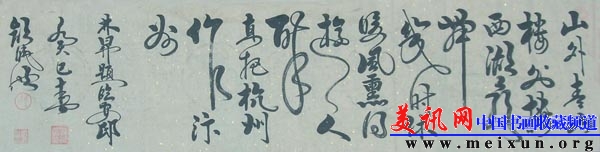 山外青山
楼外楼
西湖歌
舞
几时休
暖風熏得
游人
醉
直把杭州
作汴
州
林昇题临安邸
癸巳春
美讯网 中国书画收藏频道
www.meixun.org